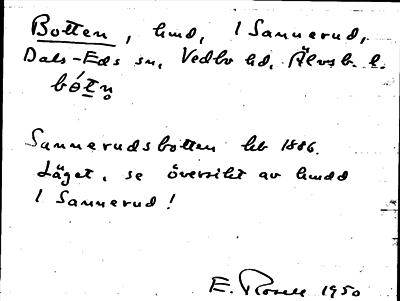 Botten, hmd, 1 Sannerud,
Dals-Eds sn, Vedbo hd, Älvsb. l.
bótn̥
Sannerudsbotten hb 1886.
Läget, se översikt av hmdd
1 Sannerud!
E. Rosell 1950